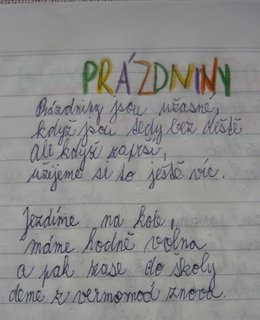 PRÁZDNINY
Prázdniny jsou úžasné,
když jsou tedy bez deště
Ale když zaprší,
užijeme si to ještě víc.
Jezdíme na kole,
máme hodně volna
a pak zase do školy
deme z znova.